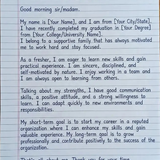 Good morning sir/madam.
My name is [Your Name], and I am from [Your City/State].
I have recently completed my graduation in [Your Degree]
from [Your College/University Name].
I belong to a supportive family that has always motivated
me to work hard and stay focused.
As a fresher, I am eager to learn new skills and gain
practical experience. I am sincere, disciplined, and
self-motivated by nature. I enjoy working in a team and
I am always open to learning from others.
Talking about my strengths, I have good communication
skills, a positive attitude, and a strong willingness to
learn. I can adapt quickly to new environments and
responsibilities.
My short-term goal is to start my career in a reputed
organization where I can enhance my skills and gain
valuable experience. My long-term goal is to grow
professionally and contribute positively to the success of the
organization.
That's all about me. Thank you for your time